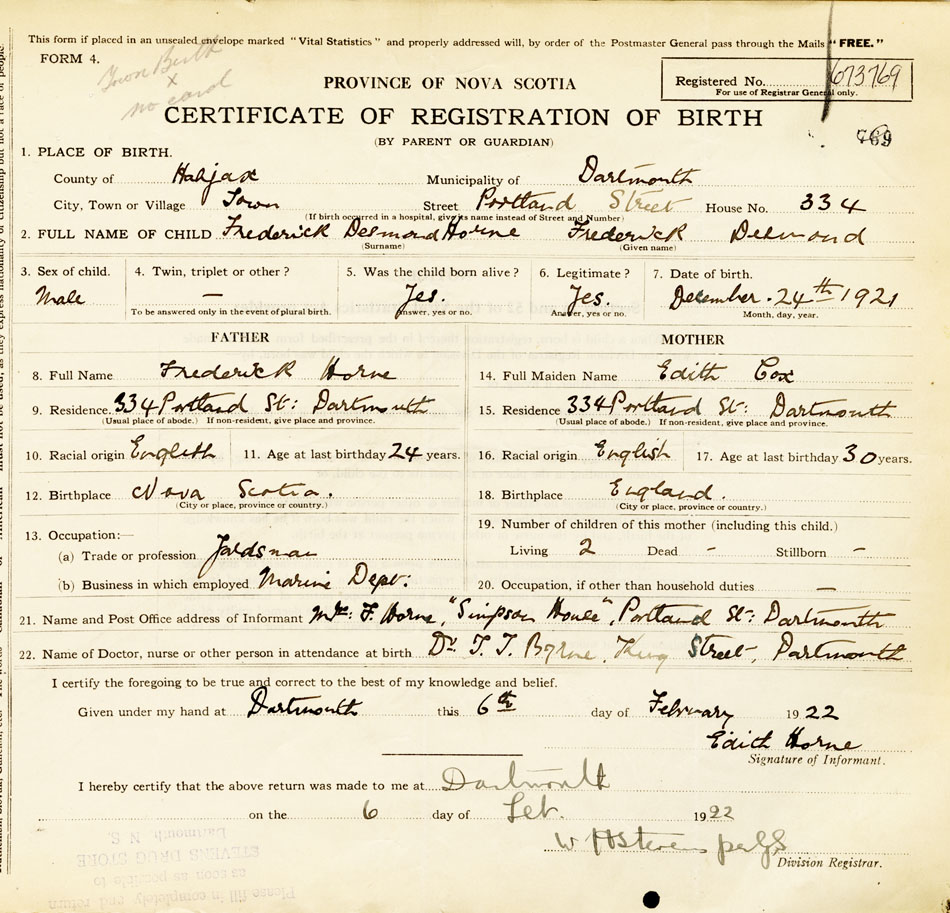 This form if placed in an unsealed envelope marked "Vital Statistics" and properly addressed will, by order of the Postmaster General pass through the Mails "FREE."
FORM 4.
Town Birth
x
no card
PROVINCE OF NOVA SCOTIA
Registered No. 673769
For use of Registrar General only.
CERTIFICATE OF REGISTRATION OF BIRTH
769
(BY PARENT OR GUARDIAN)
1. PLACE OF BIRTH.
County of Halifax Municipality of Dartmouth
City, Town or Village Town Street Portland Street House No. 334
(If birth occurred in a hospital, give its name instead of Street and Number)
2. FULL NAME OF CHILD Frederick Desmond Horne Frederick Desmond
(Surname) (Given name)
3. Sex of child. 4. Twin, triplet or other? 5. Was the child born alive? 6. Legitimate? 7. Date of birth.
Male — Yes. Yes. December. 24th 1921
To be answered only in the event of plural birth. Answer, yes or no. Answer, yes or no. Month, day, year.
FATHER MOTHER
8. Full Name Frederick Horne 14. Full Maiden Name Edith Cox
9. Residence. 334 Portland St: Dartmouth 15. Residence 334 Portland St: Dartmouth
(Usual place of abode.) If non-resident, give place and province. (Usual place of abode.) If non-resident, give place and province.
10. Racial origin English 11. Age at last birthday 24 years. 16. Racial origin English 17. Age at last birthday 30 years.
12. Birthplace Nova Scotia. 18. Birthplace England.
(City or place, province or country.) (City or place, province or country.)
13. Occupation:— 19. Number of children of this mother (including this child.)
(a) Trade or profession Yardsman Living 2 Dead - Stillborn -
(b) Business in which employed Marine Dept: 20. Occupation, if other than household duties —
21. Name and Post Office address of Informant Mrs: F. Horne, "Simpson House", Portland St: Dartmouth
22. Name of Doctor, nurse or other person in attendance at birth Dr. T. J. Byrne, King Street, Dartmouth
I certify the foregoing to be true and correct to the best of my knowledge and belief.
Given under my hand at Dartmouth this 6th day of February 1922
Edith Horne
Signature of Informant.
I hereby certify that the above return was made to me at Dartmouth
on the 6 day of Feb. 1922
W H Stevens per
Division Registrar.
Please fill in completely and return
as soon as possible to
STEVENS DRUG STORE
Dartmouth, N. S.